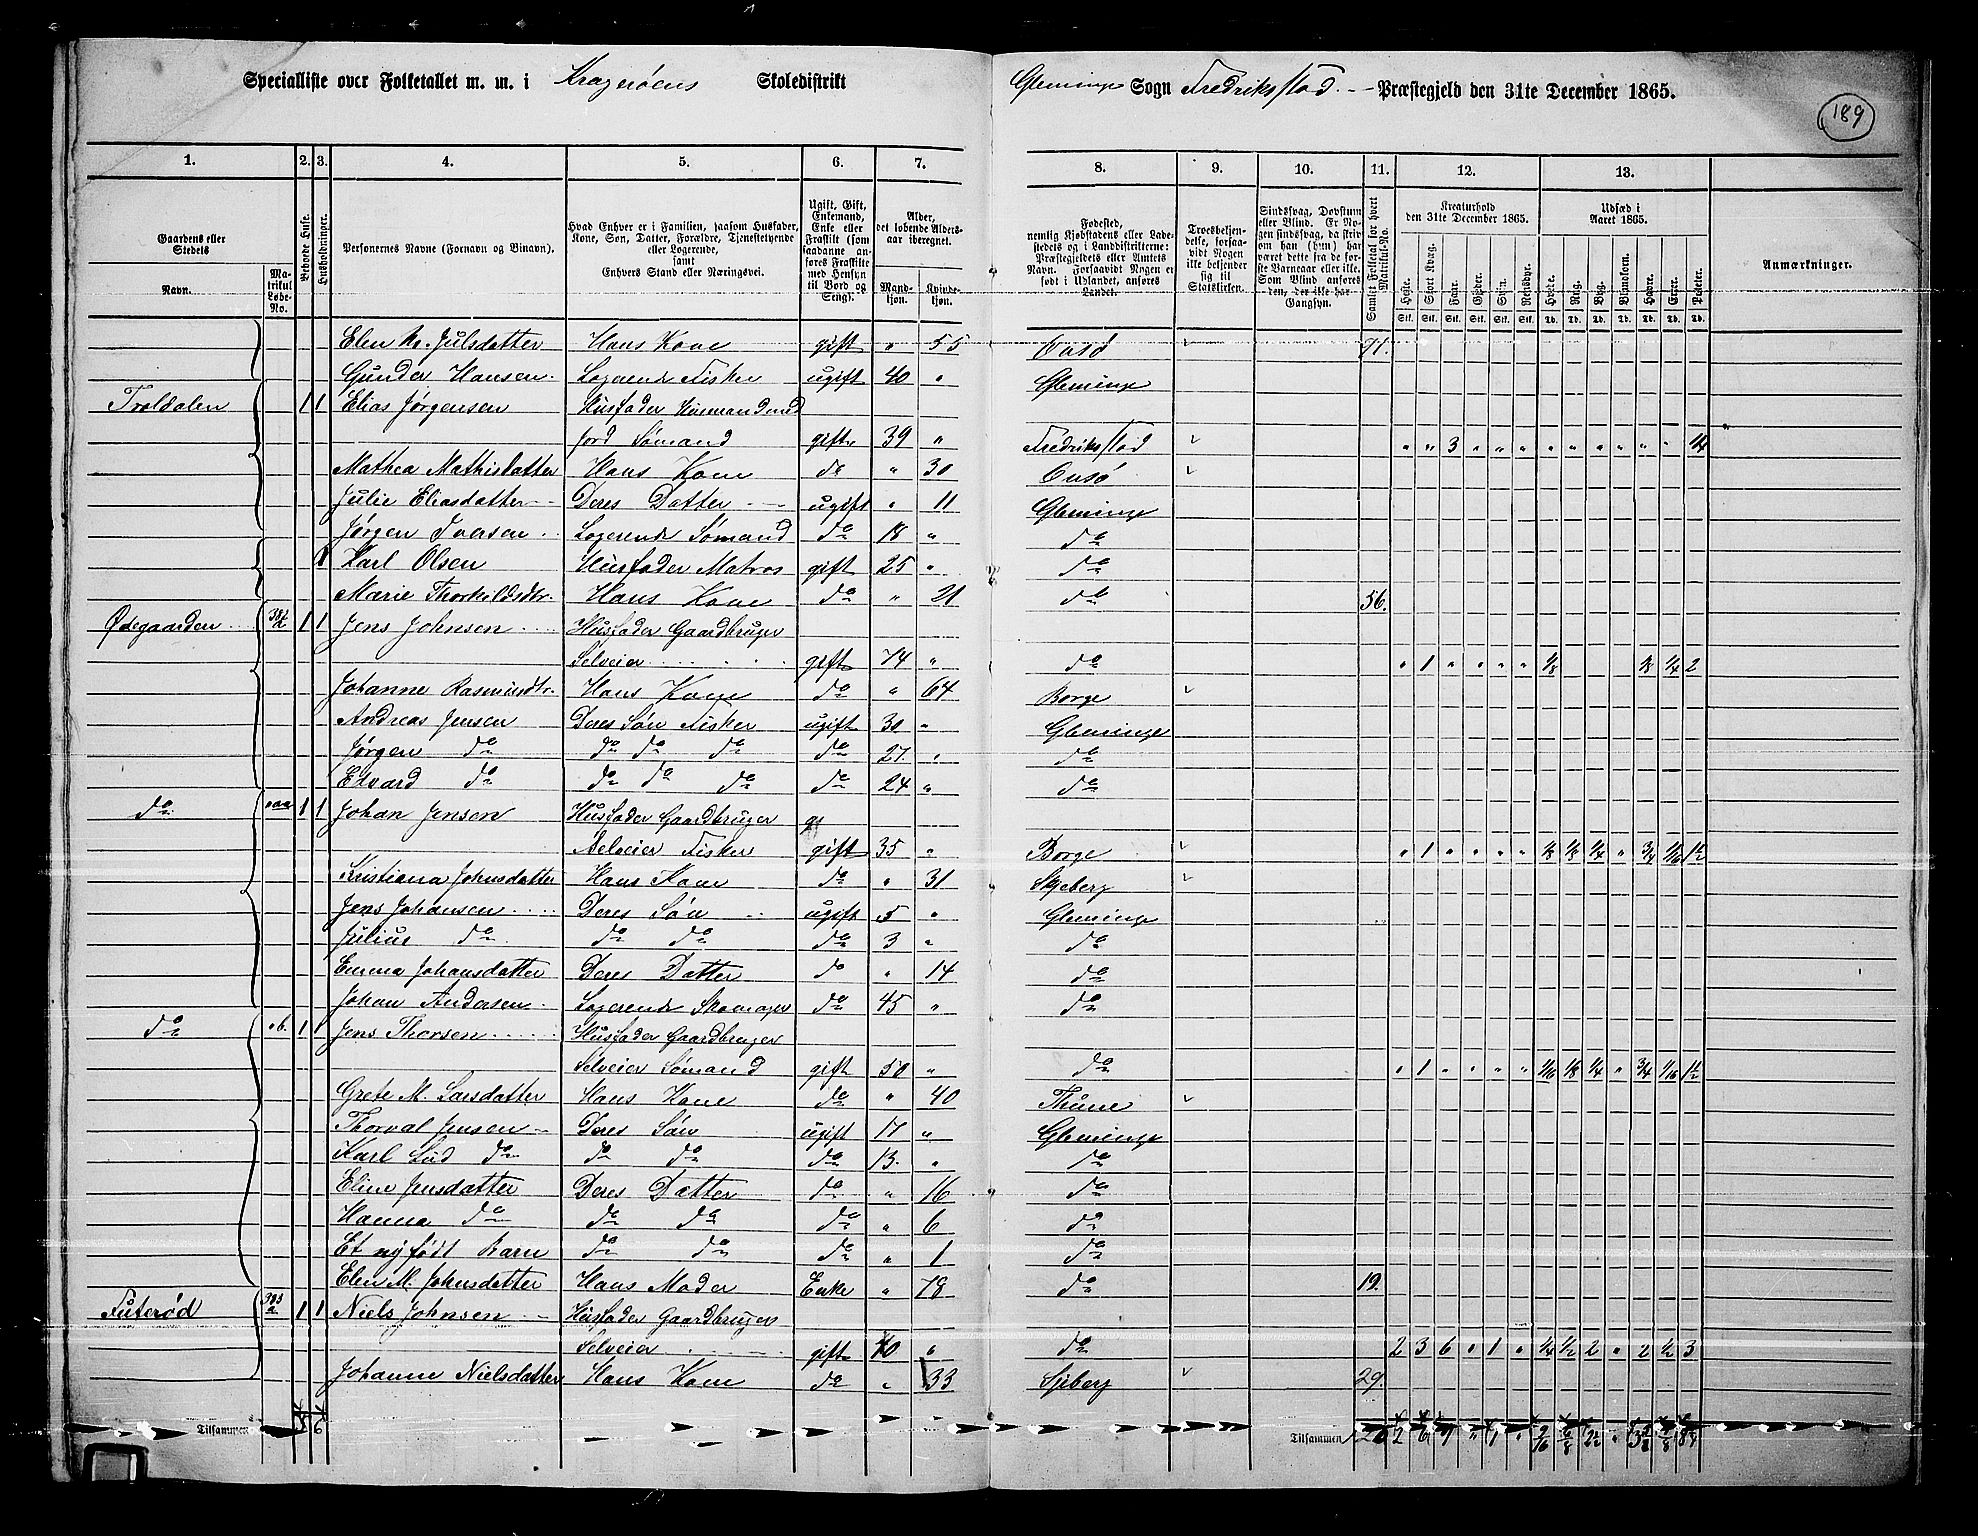 Specialliste over Folketallet m. m. i Kragerøens Skoledistrikt Glemminge Sogn Fredriksstad Præstegjeld den 31te December 1865.
189
1. 2. 3. 4. 5. 6. 7. 8. 9. 10. 11. 12. 13.
Gaardens eller Stedets Navn. Matrikul Løbe-No.
Beboede Huse.
Husholdninger.
Personernes Navne (Fornavn og Binavn).
Hvad Enhver er i Familien, saasom Husfader, Kone, Søn, Datter, Forældre, Tjenestetyende eller Logerende, samt Enhvers Stand eller Næringsvei.
Ugift, Gift, Enkemand, Enke eller Fraskilt (som saadanne anføres Fraskilte med Hensyn til Bord og Seng).
Alder, det løbende Aldersaar iberegnet. Mandkjøn. Kvindekjøn.
Fødested, nemlig Kjøbstadens eller Ladestedets og i Landdistrikterne: Præstegjeldets eller Amtets Navn. Forsaavidt Nogen er født i Udlandet, anføres Landet.
Troesbekjendelse, forsaavidt Nogen ikke bekjender sig til Statskirken.
Sindssvag, Døvstum eller Blind. Er Nogen sindssvag, da skriv om han (hun) har været dette fra de første Barneaar eller ikke. Som Blind anføres den, der ikke har Gangsyn.
Samlet Folketal for hvert Matrikul-No.
Kreaturhold den 31te December 1865.
Heste. Stort Kvæg. Faar. Gjeder. Svin. Rensdyr.
Udsæd i Aaret 1865.
Hvede. Rug. Byg. Blandkorn. Havre. Erter. Poteter.
Stk. Stk. Stk. Stk. Stk. Stk. Td. Td. Td. Td. Td. Td. Td.
Anmærkninger.
Elen Julsdatter Hans Kone gift " 55 Onsø 71.
Gunder Hansen Logerende Fisker ugift 40 " Glemminge
Troldalen 1 1 Elias Jørgensen Husfader Husmand med
Jord Sømand gift 39 " Fredriksstad " " 3 " " " " " " " " " 4
Mathea Mathisdatter Hans Kone do " 30 Onsø
Julie Eliasdatter Deres Datter ugift " 11 Glemminge
Jørgen Iversen Logerende Sømand do 18 " do
1 Karl Olsen Husfader Matros gift 25 " do
Marie Thorkildsdtr. Hans Kone do " 21 do 56.
Ødegaarden 1 1 Jens Johnsen Husfader Gaardbruger
Selveier gift 74 " do " 1 " " " " 1/8 1/8 1/4 2
Johanne Rasmusdtr. Hans Kone do " 64 Borge
Andreas Jensen Deres Søn Fisker ugift 30 " Glemminge
Jørgen do do do do do 27 " do
Edvard do do do do do 24 " do
do 1 1 Johan Jensen Husfader Gaardbruger
Selveier Fisker gift 35 " Borge " 1 " " " " 1/8 1/8 1/4 " 3/4 1/16 1 1/2
Kristiana Johnsdatter Hans Kone do " 31 Skjeberg
Jens Johansen Deres Søn ugift 5 " Glemminge
Julius do do do do 3 " do
Emma Johansdatter Deres Datter do " 14 do
Johan Andersen Logerende Skomager do 45 " do
do " b. 1 1 Jens Thorsen Husfader Gaardbruger
Selveier Sømand gift 50 " do " 1 " " " " 1/16 1/8 1/4 " 3/4 1/16 1 1/2
Grete M. Larsdatter Hans Kone do " 40 Thune
Thorval Jensen Deres Søn ugift 17 " Glemminge
Karl Lud do do do do 13. " do
Eline Jensdatter Deres Datter do " 16 do
Hanna do do do do " 6 do
Et nyfødt Barn do do do " 1 do
Elen M. Johnsdatter Hans Moder Enke " 78 do 19.
Futerød 1 1 Niels Johnsen Husfader Gaardbruger
Selveier gift 40 " do 2 3 6 " 1 " 1/4 1/2 2 " 2 1/2 3
Johanne Nielsdatter Hans Kone do " 33 Sjeberg 29.
Tilsammen Tilsammen